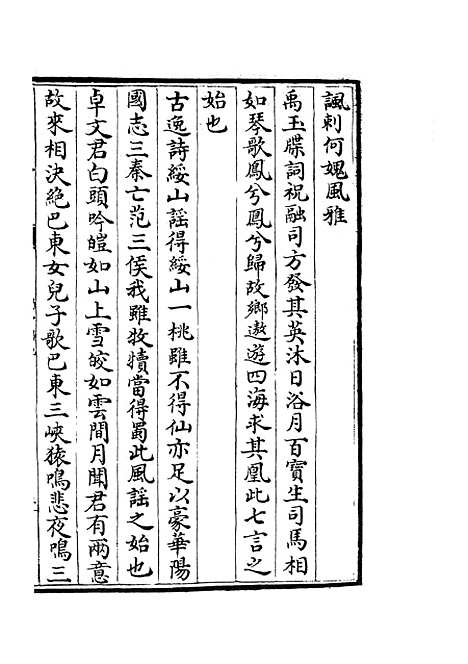 諷刺何媿風雅
禹玉牒詞祝融司方發其英沐日浴月百寶生司馬相
如琴歌鳳兮鳳兮歸故鄉遨遊四海求其凰此七言之
始也
古逸詩綏山謡得綏山一桃雖不得仙亦足以豪華陽
國志三秦亡范三侯我雖牧犢當得蜀此風謡之始也
卓文君白頭吟皚如山上雪皎如雲間月聞君有兩意
故來相決絶巴東女兒子歌巴東三峽猿鳴悲夜鳴三